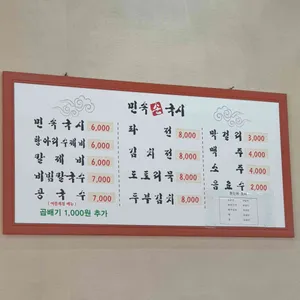 민속손국시
민속국시 6,000
항아리수제비 6,000
칼제비 6,000
비빔칼국수 7,000
콩국수 7,000
곱빼기 1,000원 추가
파전 8,000
김치전 8,000
도토리묵 8,000
두부김치 8,000
막걸리 3,000
맥주 4,000
소주 4,000
음료수 2,000